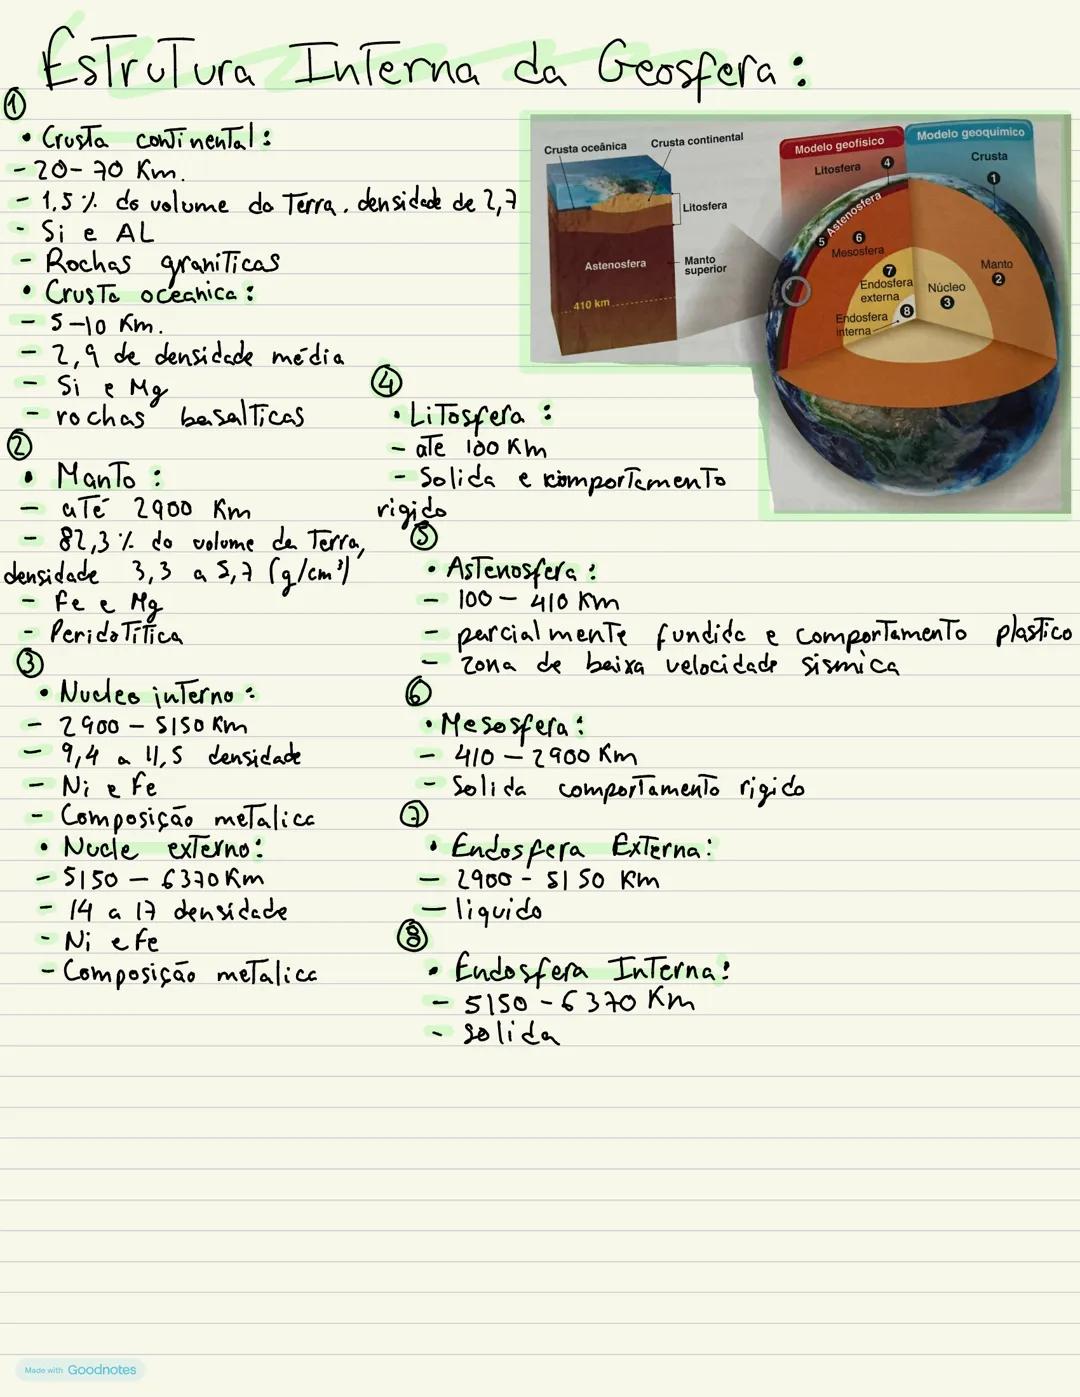 Estrutura Interna da Geosfera:
1
• Crusta continental:
- 20-70 Km.
- 1,5% do volume da Terra. densidade de 2,7
- Si e AL
- Rochas graniticas
• Crusta oceanica:
- 5-10 Km.
- 2,9 de densidade média
- Si e Mg
- rochas basalticas
2
• Manto:
- até 2900 Km
- 82,3% do volume da Terra,
densidade 3,3 a 5,7 (g/cm³)
- Fe e Mg
- Peridotitica
3
• Nucleo interno:
- 2900 - 5150 Km
- 9,4 a 11,5 densidade
- Ni e Fe
- Composição metalica
• Nucle externo:
- 5150 - 6370 Km
- 14 a 17 densidade
- Ni e Fe
- Composição metalica
Crusta oceânica
Crusta continental
Litosfera
Astenosfera
Manto
superior
410 km
Modelo geofísico
Modelo geoquímico
Litosfera
4
Crusta
1
5 Astenosfera
6
Mesosfera
7
Endosfera
externa
8
Endosfera
interna
Núcleo
3
Manto
2
4
• Litosfera:
- até 100 Km
- Solida e comportamento
rigido
5
• Astenosfera:
- 100 - 410 Km
- parcialmente fundida e comportamento plastico
- zona de baixa velocidade sismica
6
• Mesosfera:
- 410 - 2900 Km
- Solida comportamento rigido
7
• Endosfera Externa:
- 2900 - 5150 Km
- liquido
8
• Endosfera Interna:
- 5150 - 6370 Km
- solida
Made with Goodnotes